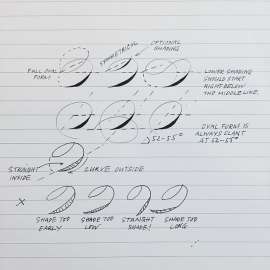 OPTIONAL
SHADING
SYMMETRICAL
FULL OVAL
FORM
LOWER SHADING
SHOULD START
RIGHT BELOW
THE MIDDLE LINE.
52-55°
OVAL FORMS IS
ALWAYS SLANT
AT 52-55°
STRAIGHT
INSIDE
CURVE OUTSIDE
X
SHADE TOO
EARLY
SHADE TOO
LOW
STRAIGHT
SHADE!
SHADE TOO
LONG